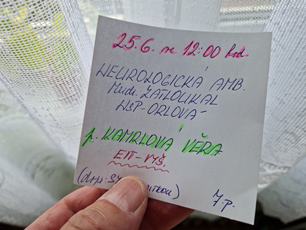 25.6. ve 12:00 hod.
NEUROLOGICKÁ AMB.
Mudr. ZATLOUKAL
NSP-ORLOVÁ
p. KAMRLOVÁ VĚRA
EIT-VYŠ.
7p.